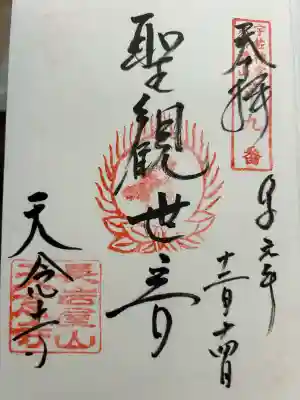 奉拝
九番
令元年
十二月十四日
聖観世音
天念寺
長岩屋山
天念寺